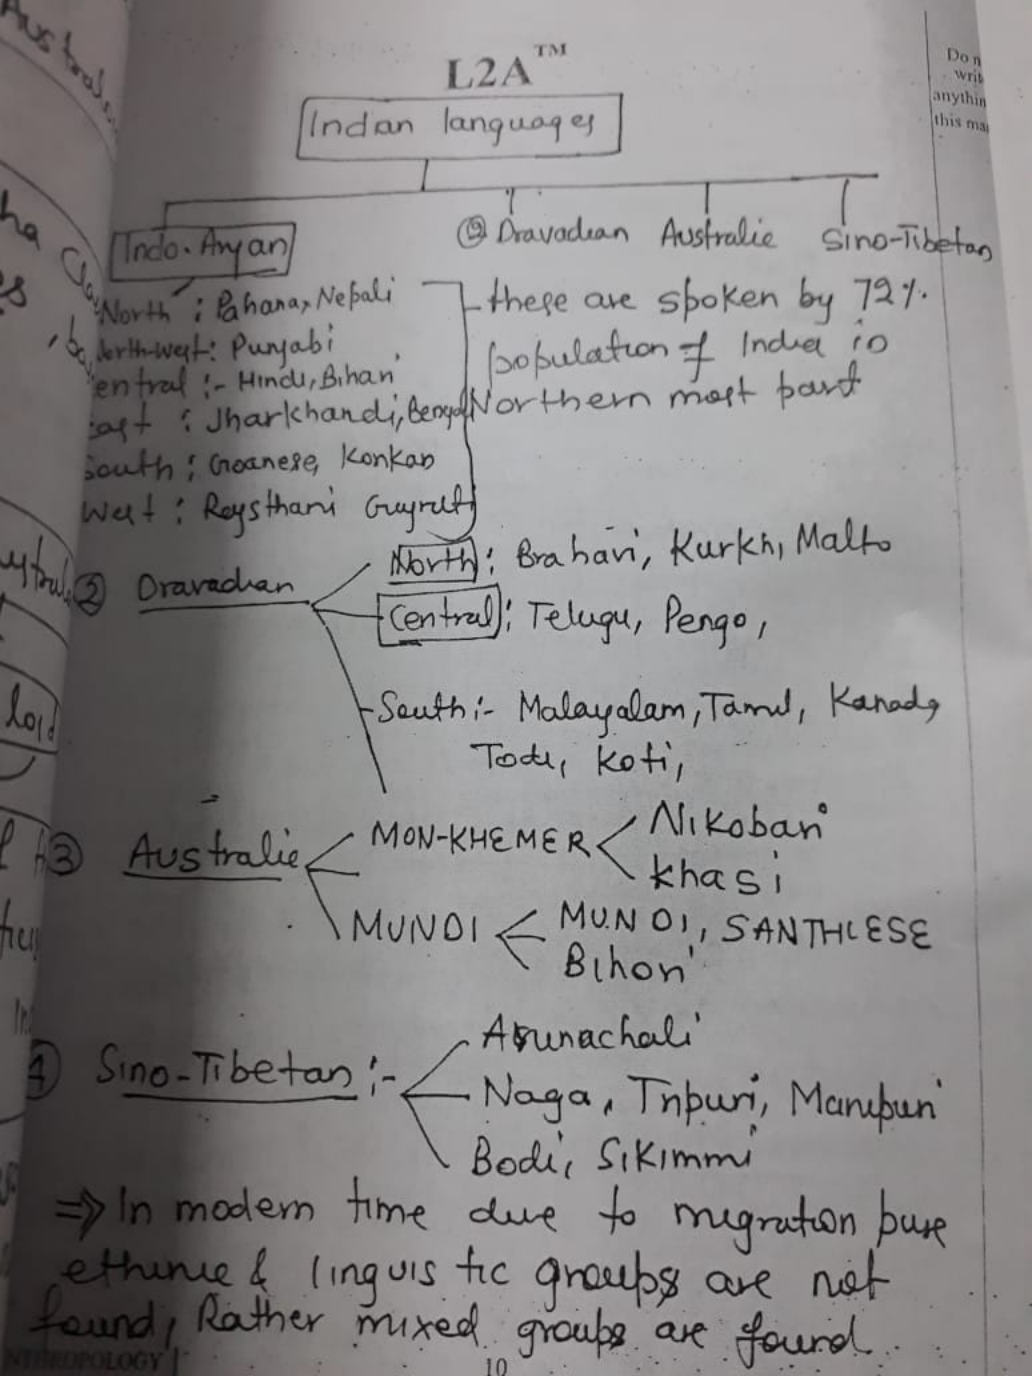 L2A™
Do n
writ
anythin
this ma
Indian languages
Indo-Aryan
② Dravadian Australic Sino-Tibetan
North : Pahari, Nepali
North-west : Punjabi
entral :- Hindi, Bihari
East : Jharkhandi, Bengal
South : Goanese, Konkan
West : Raysthani Gujrati
these are spoken by 72%.
population of India in
Northern most part
② Dravadian
North : Brahari, Kurkh, Malto
Central : Telugu, Pengo,
South :- Malayalam, Tamil, Kanada,
Toda, Koti,
③ Australic
MON-KHEMER
Nikobari
Khasi
MUNDI
MUNDI, SANTHLESE
Bihori
④ Sino-Tibetan :-
Arunachali
Naga, Tripuri, Manipuri
Bodi, Sikimmi
⇒ In modern time due to migration pure
ethinic & linguistic groups are not
found, Rather mixed groups are found
NTHROPOLOGY |
10